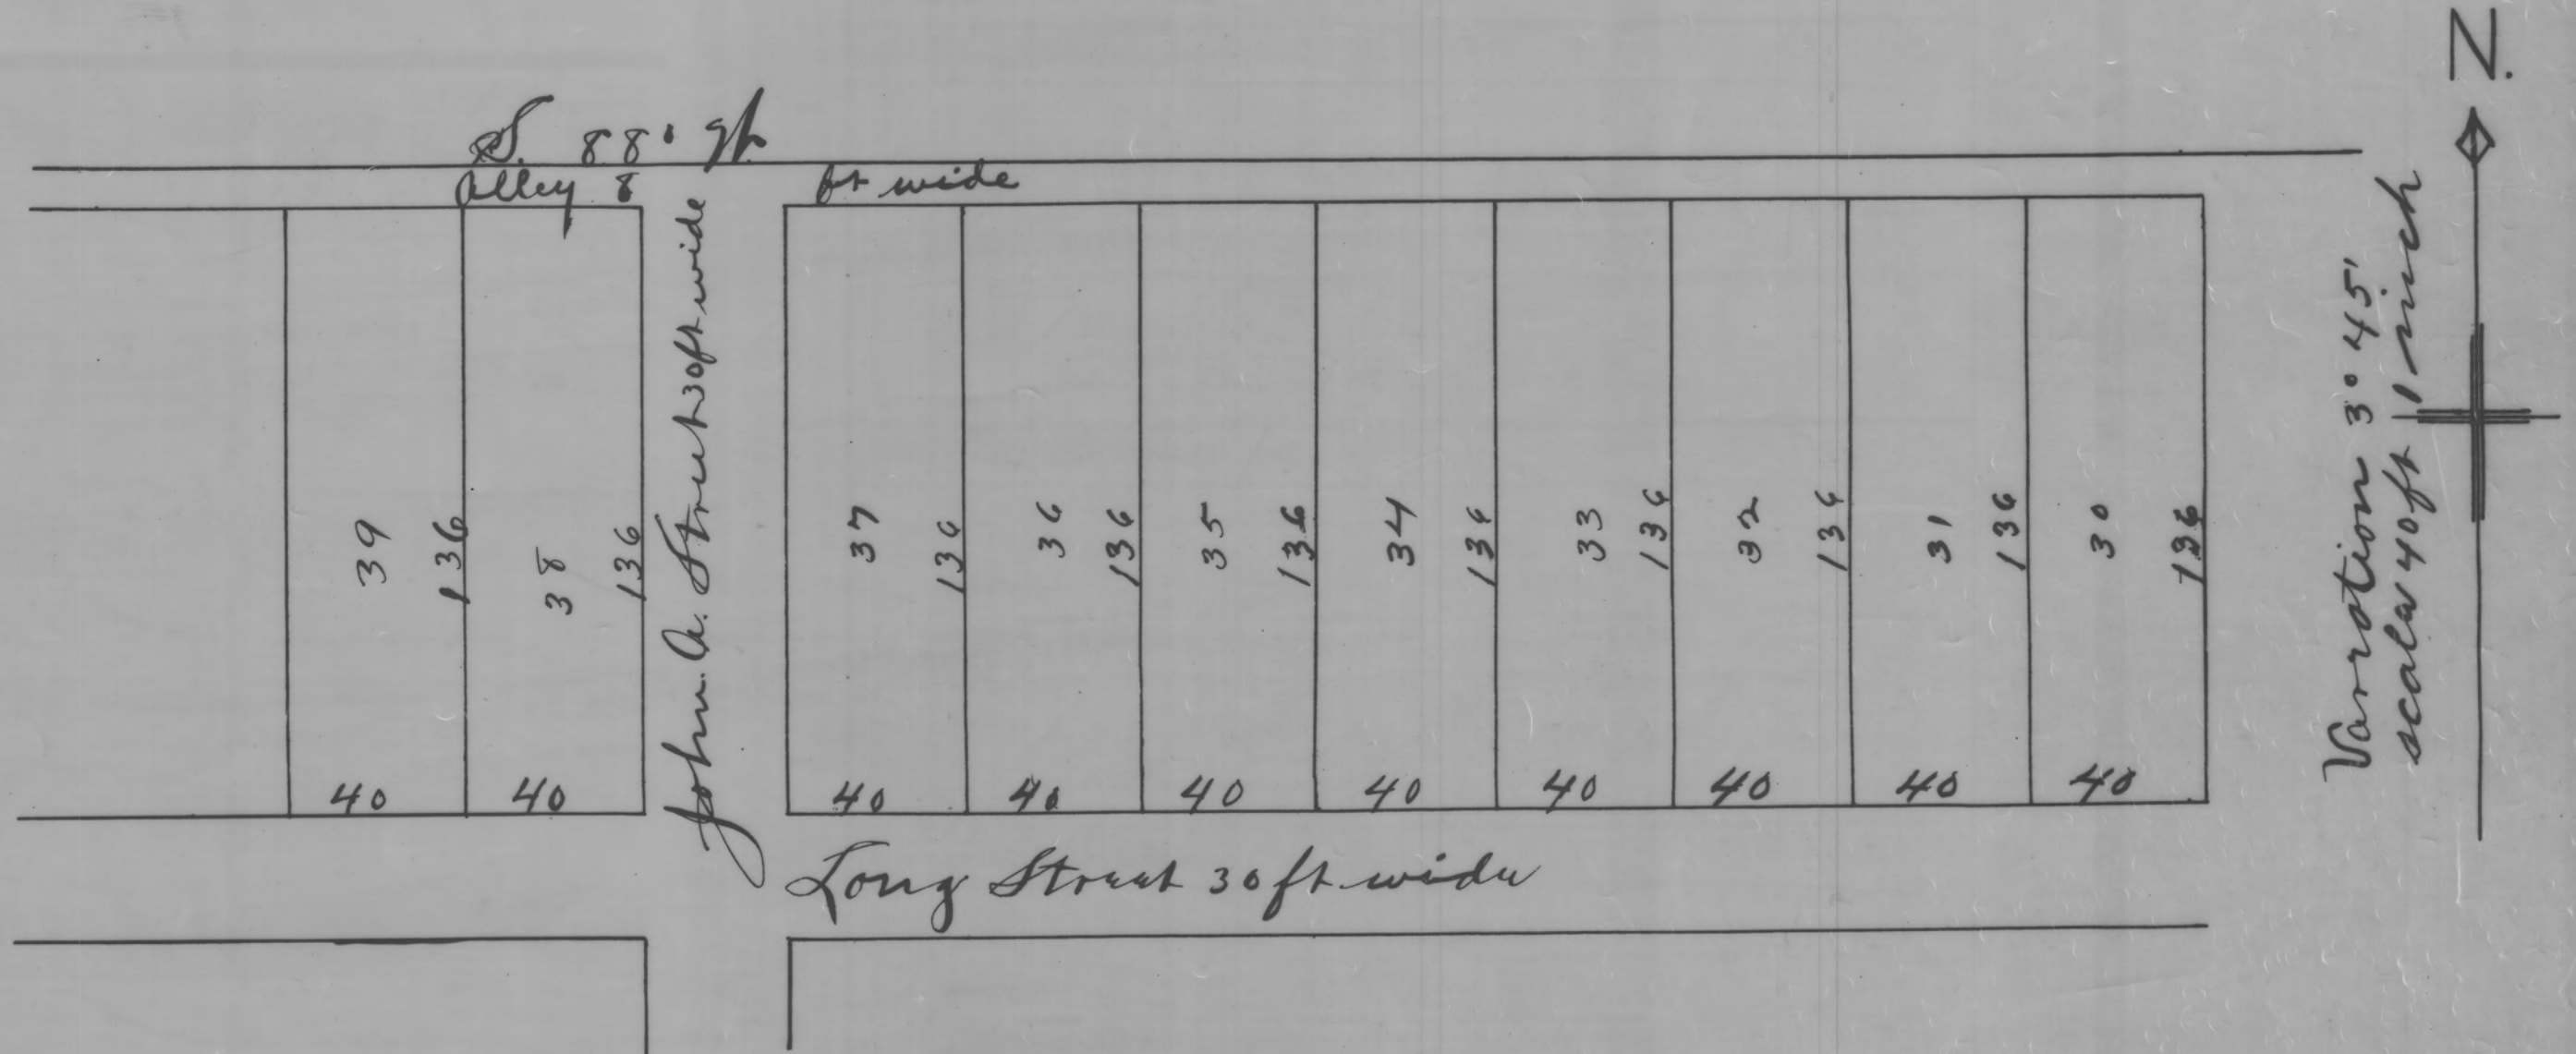 N.
S. 88°
Alley 8 ft wide
John. A. Street 30ft wide
39
136
38
136
37
136
36
136
35
136
34
136
33
136
32
136
31
136
30
136
40
40
40
40
40
40
40
40
40
40
Long Street 30 ft wide
Variation 3° 45'
scale 40ft 1 inch